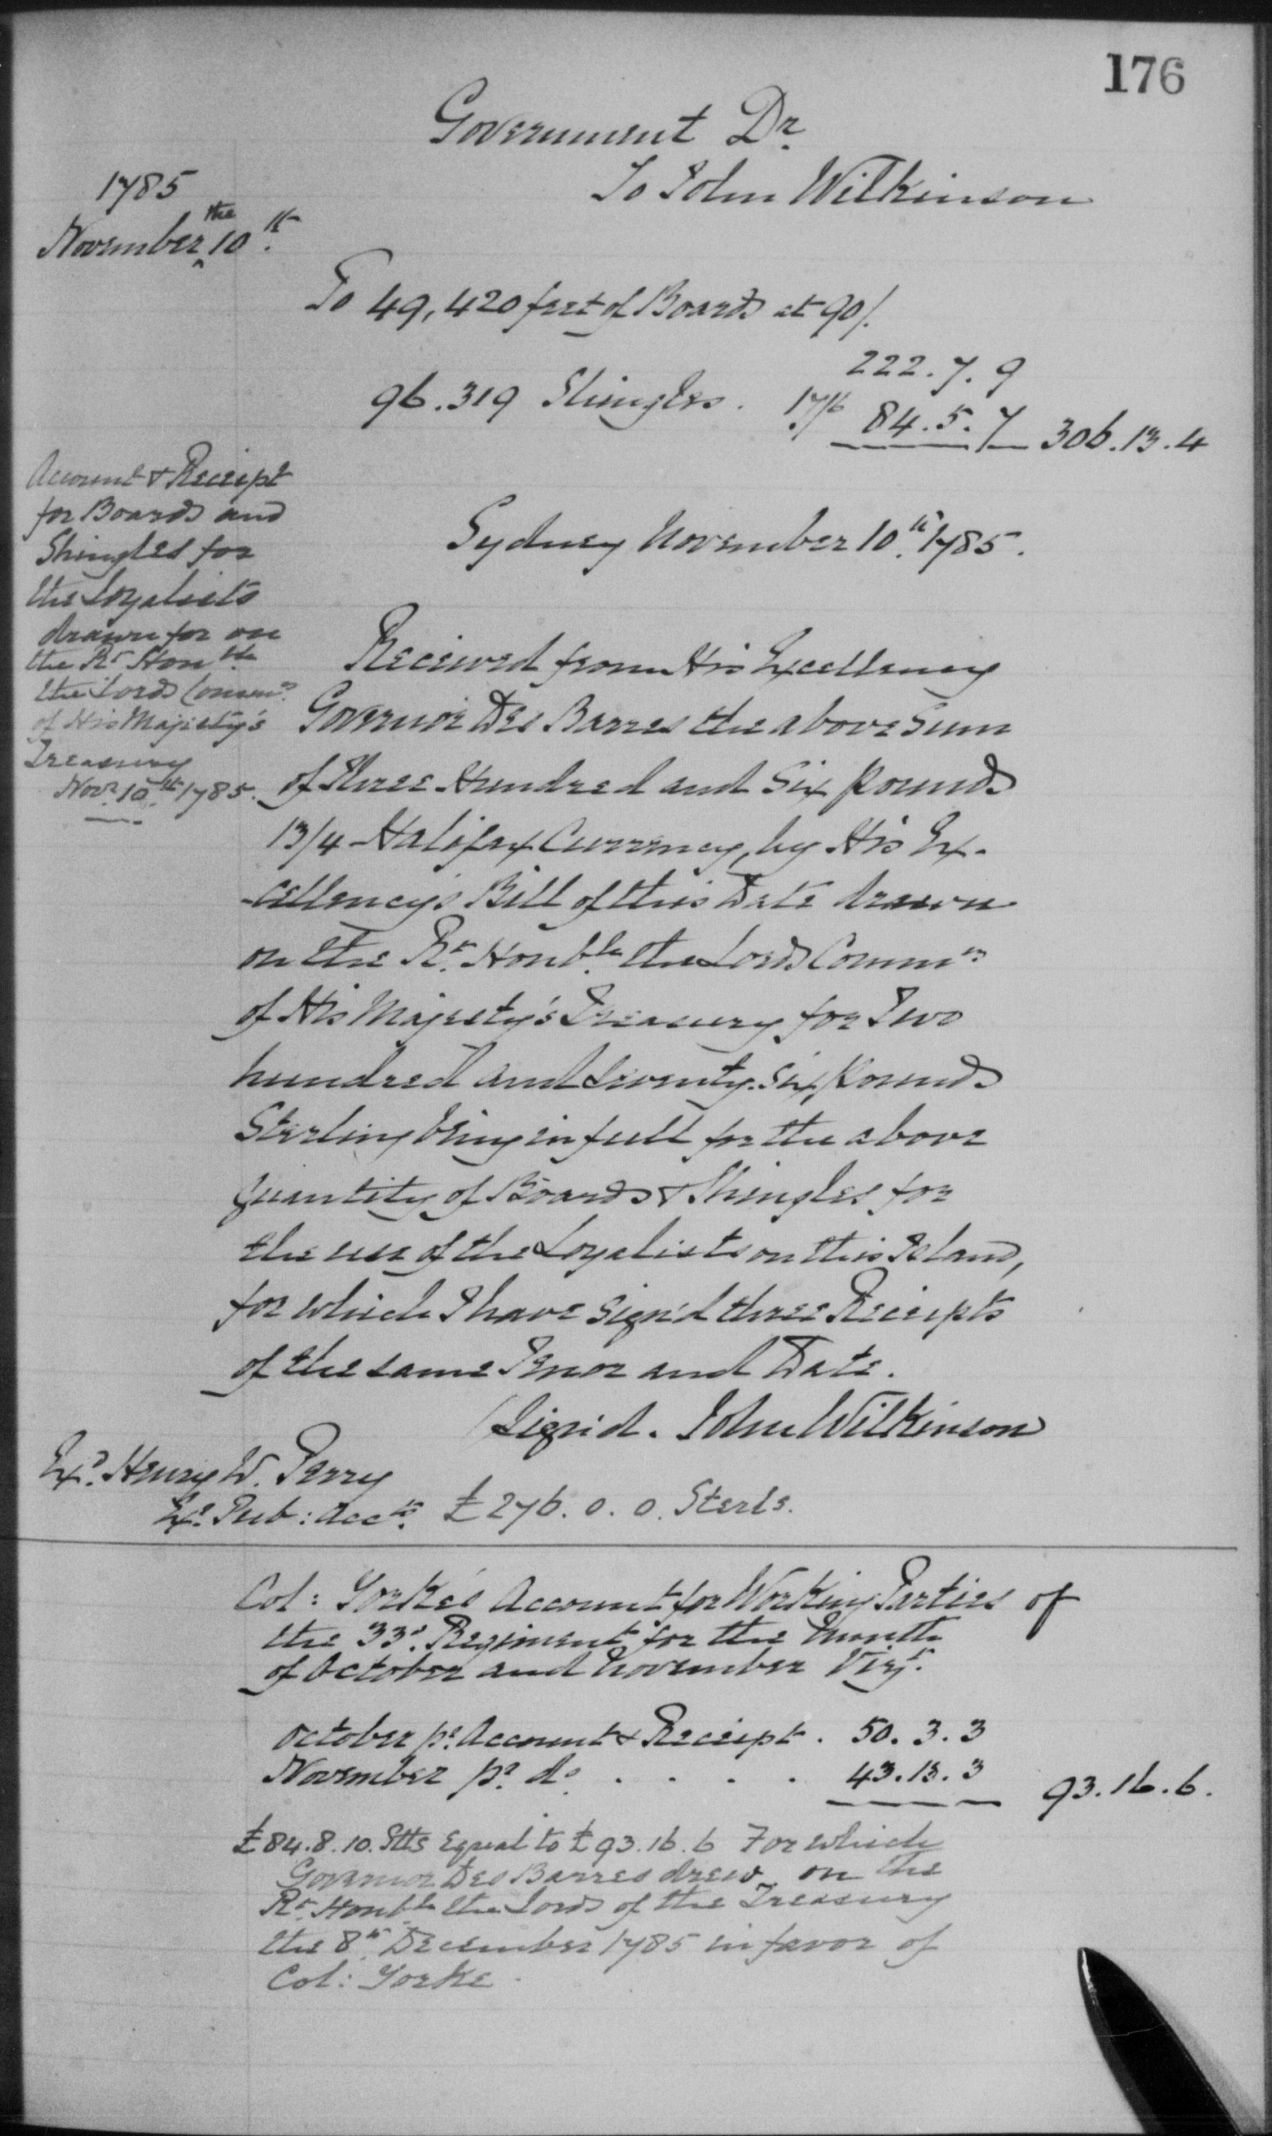 176
Government Dr.
To John Wilkinson
1785
November the 10th.
To 49,420 feet of Boards at 90/.
222.7.9
96.319 Shingles. 17/6 84.5.7 306.13.4
Account & Receipt
for Boards and
Shingles for
the Loyalists
drawn for on
the Rt Honble
the Lords Comm.rs
of His Majesty's
Treasury
Novr. 10th 1785.
Sydney November 10th. 1785.
Received from His Excellency
Governor Des Barres the above Sum
of Three Hundred and Six Pounds
13/4 Halifax Currency, by His Ex-
-cellency's Bill of this Date drawn
on the Rt. Honble. the Lords Commrs
of His Majesty's Treasury for Two
hundred and Seventy Six Pounds
Sterling being in full for the above
quantity of Boards & Shingles for
the use of the Loyalists on this Island,
for which I have Sign'd three Receipts
of the same Tenor and Date.
(Sign'd. John Wilkinson
Exd. Henry W. Perry
Exr. Pub: Accts. £276.0.0. Sterls.
Col: Yorke's Account for Working Parties of
the 33d. Regiment for the Month
of October and November Vizt.
October pr. Account & Receipt. 50.3.3
November pr. do. . . . . 43.13.3 93.16.6.
£84.8.10. Stls Equal to £93.16.6 For which
Governor Des Barres drew on the
Rt. Honble the Lords of the Treasury
the 8th. December 1785 in favor of
Col: Yorke.